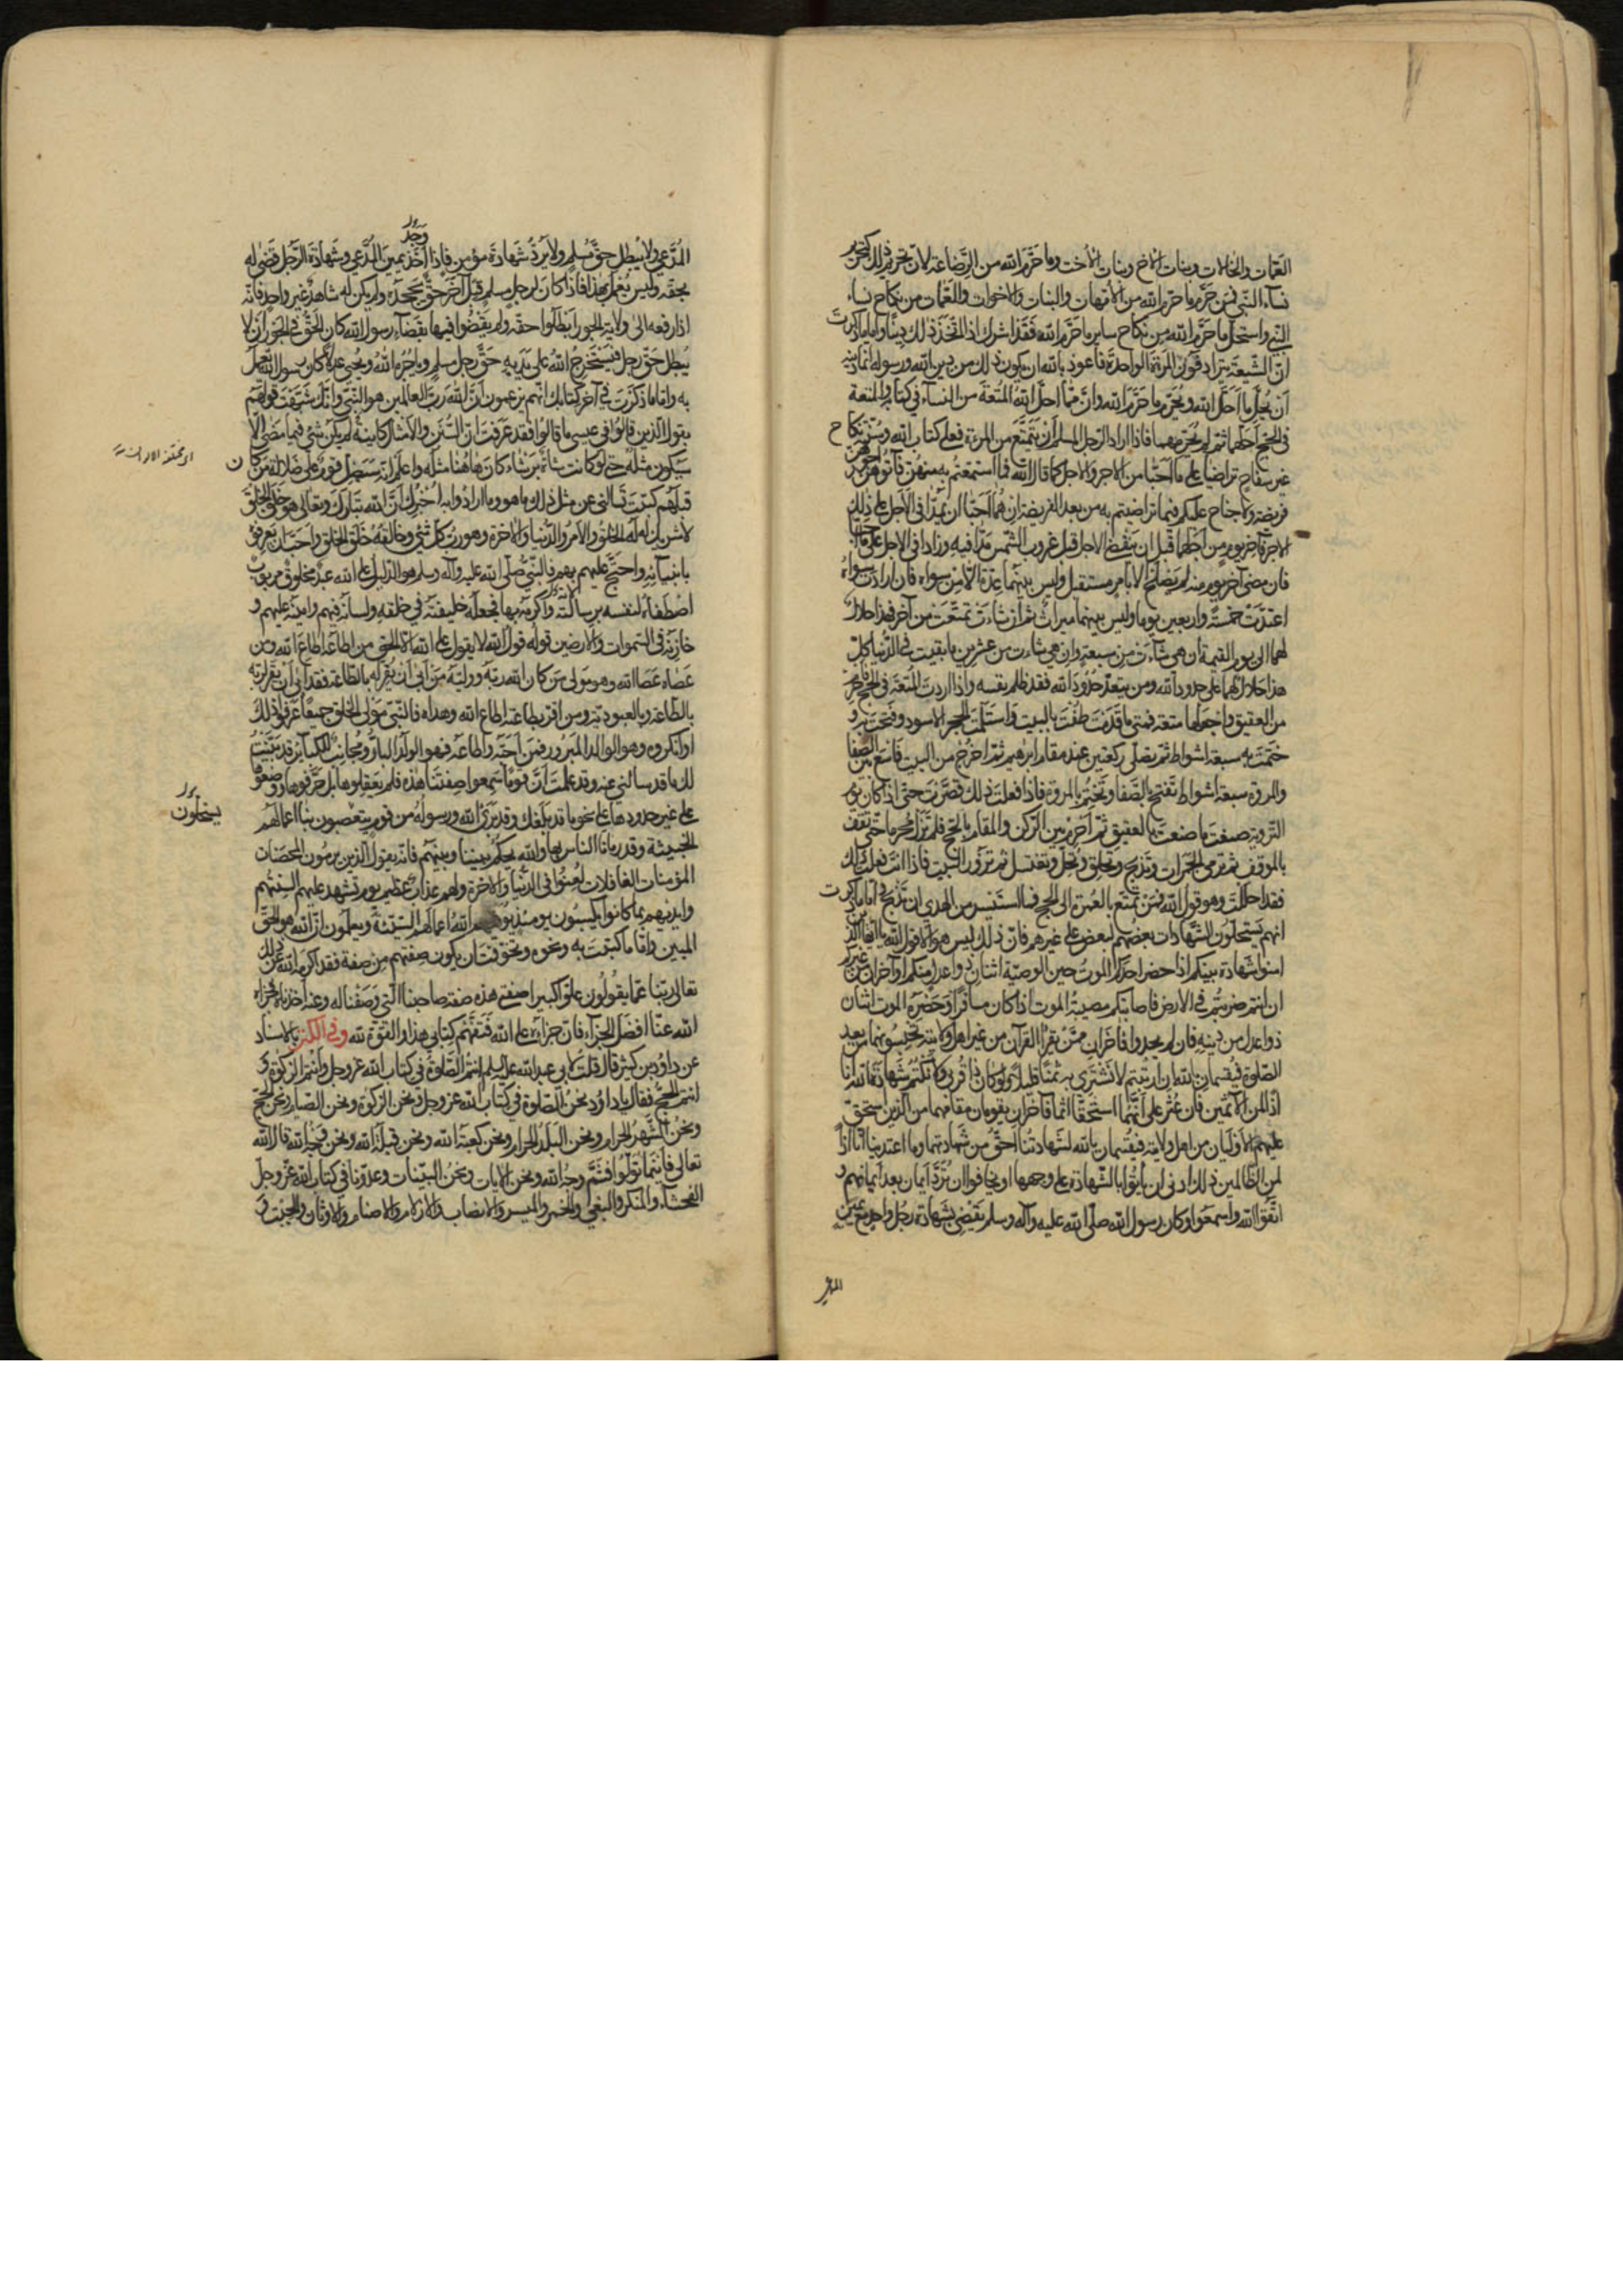 العمّات والخالات وبنات الاخ وبنات الاخت وما حَرَّم الله من الرّضاعة لانّ تحريم ذلك كتحريم
نسآء النّبي فمن حَرَّم ما حرّم الله من الاُمّهات والبنات والاخوات والعَمّات من نكاح نساء
النبي واستحلّ ما حَرَّم الله من نكاح ساير ما حَرَّم الله فقد اشرك اذا اتّخذ ذلك دينًا واما ما ذكرت
انّ الشّيعة يترادفون المرءة الواحدة فاعوذ بالله ان يكون ذلك من دين الله ورسوله انّما دينه
اَن يُحِلّ ما اَحَلّ الله ويُحَرّم ما حَرَّم الله وانّ ممّا احلّ الله المُتعَة من النسآء في كتابه والمتعة
في الحج اَحَلّهما ثم لم يُحَرّمهما فاذا اراد الرّجل المسلم اَن يتمتّع من المرءة فعلى كتاب الله وسُنّته نكاح
غير سفاح تراضيا على ما اَحَبّا من الاجر والاجل كما قال الله فما استمتعتم به منهُنّ فآتوهُنّ اجورهنّ
فريضة ولا جناح عليكم فيما تراضيتم به من بعد الفريضة ان هُما اَحَبّا ان يَمُدّا في الاجل على ذلك
الاجر فآخر يوم من اَجَلهما قبل ان ينقضي الاجل قبل غروب الشّمس مَدّا فيه وزادا في الاجل على ما
فان مضى آخر يوم منه لم يَصلُح الا بامر مستقبل وليس بينهما عدّة الّا من سواه فان ارادت سواه
اعتدّت خمسة واربعين يوما وليس بينهما ميراث ثم ان شاءَت تمتّعت من آخر فهذا حلال
لهما الى يوم القيمة ان هي شآءَت من سبعة وان هي شاءت من عشرين ما بقيت في الدّنيا كلّ
هذا حلال لهما على حدود الله ومن يتعدّ حُدُود الله فقد ظلم نفسه واذا اردتَ المُتعَة في الحج فاحرم
من العقيق واجعلها متعة فمتى ما قَدِمتَ طُفتَ بالبيت واستلمتَ الحجر الاسود وفَتَحتَ به و
ختمتَ به سبعة اشواط ثم تصلّي ركعتين عند مقام ابرهيم ثم اخرُج من البيت فاسع بين الصفا
والمروة سبعة اشواط تفتح بالصَّفا وتَختم بالمروة فاذا فعلتَ ذلك قصّرت حتّى اذا كان يوم
التّروية صنعتَ ما صنعتَ بالعقيق ثم اَحرِم بين الرّكن والمقام بالحج فلم تَزَل مُحرِما حتّى تقف
بالموقف ثم ترمي الجمرات وتَذبح وتحلق وتُحِلّ وتغتسل ثم تزور البيت فاذا انت فعلت ذلك
فقد احلَلتَ وهو قول الله فمَن تمتّع بالعُمرة الى الحج فما استَيسَر من الهدي ان تَذبح واما ما ذكرت
انهم يَستحلّون الشّهادات بعضهم لبعض على غيرهم فانّ ذلك ليس هو الّا قول الله يا ايها الذين
امنوا شهادة بينكم اذا حضر احدكم الموتُ حين الوصيّة اثنان ذوا عدل منكم او آخران من غيركم
ان انتم ضربتُم في الارض فاصابتكم مصيبة الموت اذا كان مسافرا وحضره الموت اثنان
ذوا عدل من دينه فان لم يجدوا فآخران ممّن يقرا القرآن من غير اهل ولايته تحبسونهما من بعد
الصّلوة فيُقسِمان بالله ان ارتبتم لا نَشتَري به ثمنًا قليلا ولو كان ذا قُربى ولا نكتُمُ شهادة الله انّا
اذًا لمن الآثمين فان عُثِر على اَنّهما استَحَقّا اثما فآخران يقومان مقامهما من الذين استحقّ
عليهم الاَوليان من اهل ولايته فيقسمان بالله لشهادتنا اَحَقّ من شهادتهما وما اعتدينا انّا اذًا
لمن الظالمين ذلك ادنى ان ياتُوا بالشّهادة على وجهها او يخافوا ان تُرَدّ اَيمان بعد اَيمانهم و
اتّقوا الله واسمعوا وكان رسول الله صلّى الله عليه وآله وسلم يَقضي بشهادة رجل واحد مع يمين
المدّعي
المُدّعي ولا يُبطِل حقّ مُسلِم ولا يَرُدّ شَهادةَ مؤمن فاذا اَخَذ يمينَ المُدّعي وشهادَة الرّجل قَضى له
وَجَدَ
بحقّه وليس يُعمل بهذا فاذا كان لرجل مسلم قِبَل آخر حقّ يجحده ولم يكن له شاهد غير واحد فانّه
اذا رفعه الى ولاية الجور ابطلوا حقّه ولم يقضوا فيها بقضآء رسول الله كان الحقّ في الجور اَن لا
يُبطل حقّ رجل فيستخرج الله على يَدَيه حقّ رجل مسلم ويأجُره الله ويُحيي عدلا كان رسول الله يعمل
به واما ما ذكرتَ في آخر كتابك انّهم يزعمون اَنّ الله رَبّ العالمين هو النّبي وانّك شبّهتَ قولهم
بقول الّذين قالوا في عيسى ما قالوا فقد عَرفتَ انّ السُّنَن والاَمثال كاينة لم يكن شئ فيما مضى الّا
سيكون مثله حتى لو كانت شاة بَرشاء كان هاهُنا مثله واعلم انه سَيَضِلّ قوم على ضلالة من كان
قبلهم كتبتَ تسألني عن مثل ذلك ما هو وما ارادُوا به اُخبرك اَنّ الله تبارك وتعالى هو خلق الخلق
لا شريك له له الخلق والاَمر والدّنيا والاخرة وهو رَبّ كل شئ وخالقه خَلَق الخلق واَحَبّ ان يَعرِفوه
بانبيآئه واحتجّ عليهم بهم فالنّبيّ صلّى الله عليه وآله وسلم هو الدّليل على الله عبدٌ مخلوق مربوب
اصطَفاه لنفسه برسالَتِه واَكرمه بها فجعله خليفته في خلقه ولسانَه فيهم وامينه عليهم و
خازنه في السّموات والارضين قولُه قول الله لا يقول على الله الّا الحق من اطاعه اطاع الله ومن
عَصاه عَصَا الله وهو مَولى مَن كان الله رَبّه ووليّه مَن اَبى اَن يُقِرّ له بالطّاعة فقد ابى اَن يُقِرّ لربّه
بالطّاعة وبالعبوديّة ومن اقر بطاعته اطاع الله وهداه فالنّبيّ مَولى الخلق جميعًا عرفوا ذلك
او انكروه وهو الوالد المبرور فمَن اَحَبّه واَطاعَه فهو الولد البارّ ومُجانِبٌ للكبآئر قد بيّنتُ
لك ما قد سالتني عنه وقد علمتُ اَنّ قومًا سَمِعوا صِفتَنا هذه فلم يَعقِلوها بل حَرّفوها ووضعوها
على غير حدودها على نحو ما قد بَلَغك وقد بَرِئ الله ورسوله من قوم يتعصبون بنا اعمالهم
يستحلّون
الخبيثة وقد رمانا الناس بها والله يحكُم بيننا وبينهم فانّه يقول الّذين يرمُون المحصَنات
المؤمنات الغافلات لُعِنُوا في الدّنيا والاخرة ولهم عذاب عظيم يوم تشهد عليهم السِنتُهُم
وايديهم بما كانوا يكسِبُون يومئذ يوفّيهم الله اعمالهم السّيّئة ويعلمون انّ الله هو الحقّ
المبين واما ما كتبتَ به ونحوه وتخوّفتَ ان يكون صِفتهم مِن صفة فقد اكرمه الله عن ذلك
تعالى ربّنا عمّا يقولون علوّا كبيرا صِفتي هذه صفة صاحبنا الّتي وَصَفنا له وعنه اخذناه فجزاه
الله عنّا افضَل الجزآء فانّ جزاءَه على الله فَتَفَهَّم كتابي هذا والقوّة لله وفي الكنز بالاسناد
عن داوُد بن كثير قال قلت لابي عبد الله عليه السلم انتم الصّلوة في كتاب الله عز وجل وانتم الزكوة و
انتم الحج فقال يا داوُد نحن الصّلوة في كتاب الله عز وجل ونحن الزكوة ونحن الصّيام ونحن الحجّ
ونحن الشّهر الحرام ونحن البَلَد الحرام ونحن كعبة الله ونحن قبلة الله ونحن وجه الله قال الله
تعالى فاَينما تُوَلّوا فثَمَّ وجهُ الله ونحن الايات ونحن البيّنات وعدوّنا في كتاب الله عزّ وجلّ
الفحشآء والمنكر والبغي والخمر والميسر والانصاب والازلام والاصنام والاوثان والجبت و